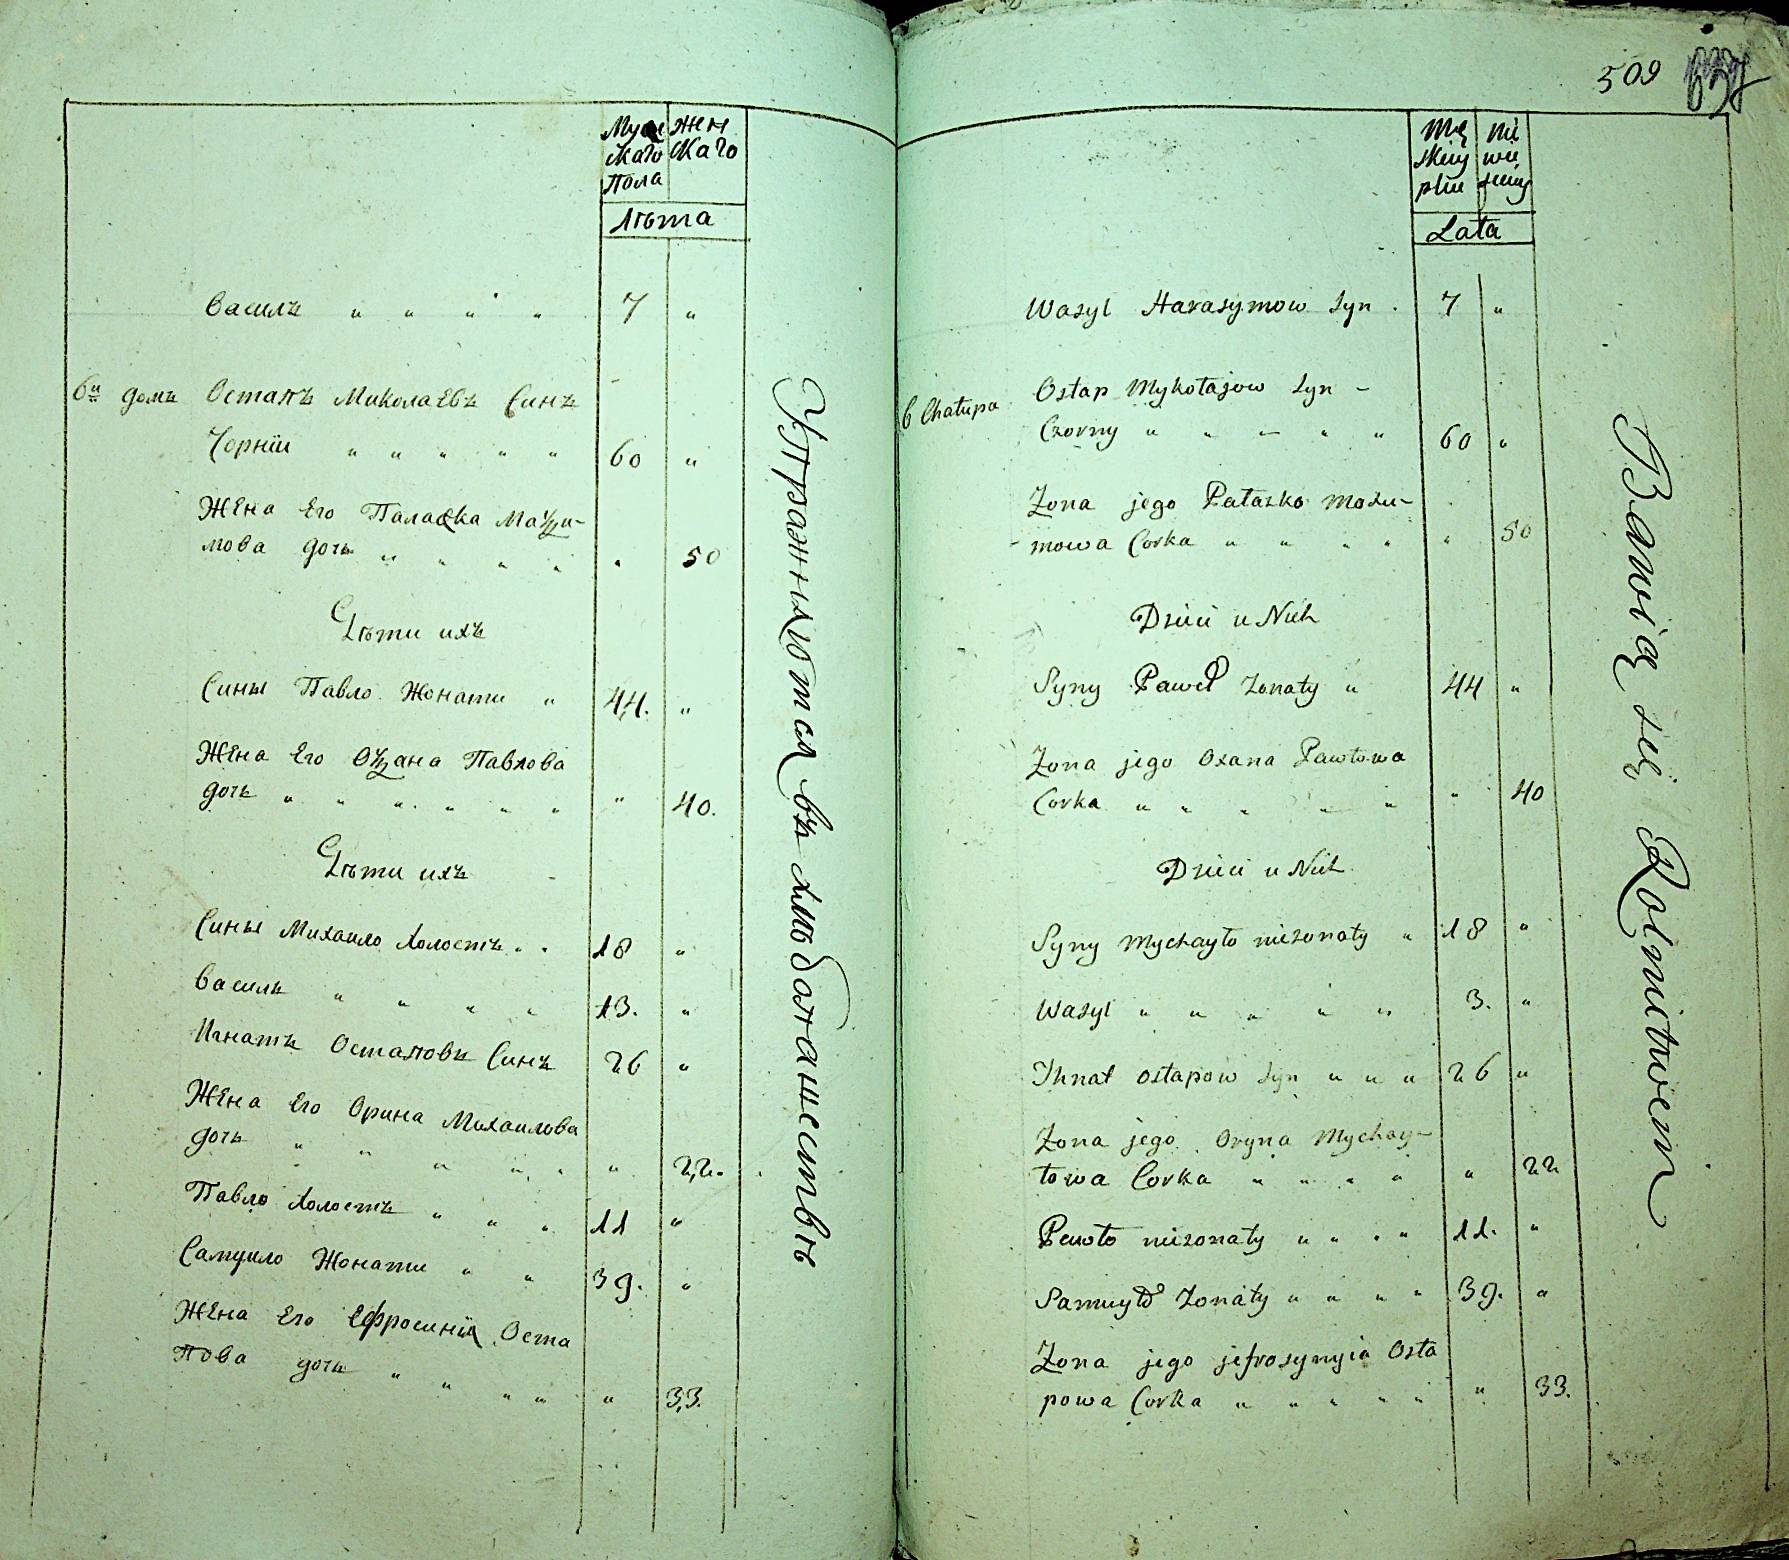 Муже
скаго
Пола
жен
скаго
Лѣта
Василь " " " " 7 "
6й домъ Остапъ Миколаевъ Синъ
Чорнїи " " " " " 60 "
Жена Его Паласка Мащи-
мова дочь " " " " " 50
Дѣти ихъ
Сины Павло Жонати " 44. "
Жена Его Оѯана Павлова
дочь " " " " " " " 40.
Дѣти ихъ
Сины Михаило Холостъ " " 18 "
Василь " " " " 13. "
Игнатъ Остаповъ Синъ 26 "
Жена Его Орина Михаилова
дочь " " " " " " 22.
Павло Холостъ " " " 11 "
Самуило Жонати " " 39. "
Жена Его Ефросинїя Оста
пова дочь " " " " " 33.
Упражняются въ хлѣбопашествѣ
509
Mę
skiey
płci
Lata
Wasyl Harasymow Syn . 7 "
6 Chałupa Ostap Mykołajow Syn -
Czorny " " " " " 60 "
Zona jego Pałazka Maxi-
mowa Corka " " " " " 50
Dzieci u Nich
Syny Paweł Zonaty " 44 "
Zona jego Oxana Pawłowa
Corka " " " " " " 40
Dzieci u Nich
Syny Mychayło niezonaty " 18 "
Wasyl " " " " " 3. "
Ihnat Ostapow Syn " " " 26 "
Zona jego Oryna Mychay-
łowa Corka " " " " " 22
Pawło niezonaty " " " " 11. "
Samuyło Zonaty " " " " 39. "
Zona jego jefrosynyia Osta
powa Corka " " " " " " 33.
Bawią się Rolnictwem